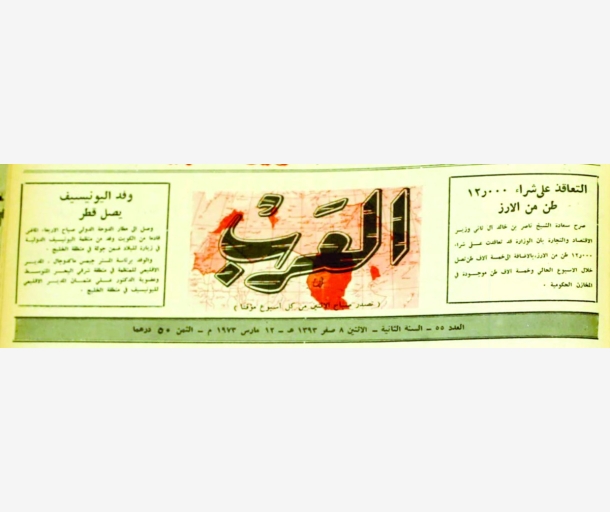 التعاقد على شراء ١٢٫٠٠٠
طن من الارز
صرح سعادة الشيخ ناصر بن خالد ال ثاني وزير
الاقتصاد والتجارة بان الوزارة قد تعاقدت على شراء
١٢٫٠٠٠ طن من الارز بالاضافة لخمسة الاف طن تصل
خلال الاسبوع الحالي وخمسة الاف طن موجودة في
المخازن الحكومية .
العرب
( تصدر صباح الاثنين من كل اسبوع مؤقتا )
وفد اليونيسيف
يصل قطر
وصل الى مطار الدوحة الدولي صباح الاربعاء الماضي
قادما من الكويت وفد من منظمة اليونيسيف الدولية
في زيارة للبلاد ضمن جولة في منطقة الخليج .
والوفد برئاسة المستر جيمس ماكدوجال ، المدير
الاقليمي للمنظمة في منطقة شرقي البحر المتوسط
وعضوية الدكتور على عثمان المدير الاقليمي
لليونيسيف في منطقة الخليج .
العدد ٥٥ – السنة الثانية – الاثنين ٨ صفر ١٣٩٣ هـ – ١٢ مارس ١٩٧٣ م – الثمن ٥٠ درهما